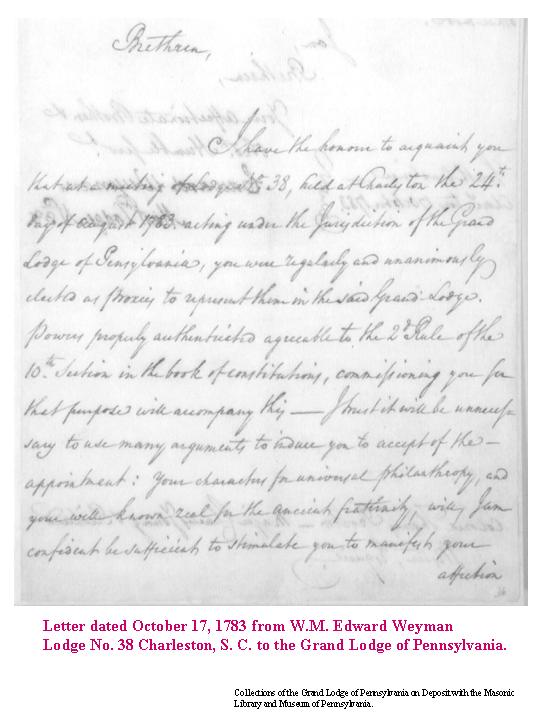 Brethren,
I have the honour to acquaint you
that at a meeting of Lodge No. 38, held at Charlston the 24th.
day of august 1783 acting under the Jurisdiction of the Grand
Lodge of Pensylvania, you were regularly and unanimously
elected as Proxies to represent them in the said Grand Lodge.
Powers properly authenticated agreable to the 2d. Rule of the
10th. Section in the book of constitutions, commissioning you for
that purpose will accompany this — I trust it will be unneces-
sary to use many arguments to induce you to accept of the —
appointment: Your characters for universal philanthropy, and
your well known zeal for the ancient fraternity, will, I am
confident be sufficient to stimulate you to manifest your
affection
Letter dated October 17, 1783 from W.M. Edward Weyman
Lodge No. 38 Charleston, S. C. to the Grand Lodge of Pennsylvania.
Collections of the Grand Lodge of Pennsylvania on Deposit with the Masonic
Library and Museum of Pennsylvania.